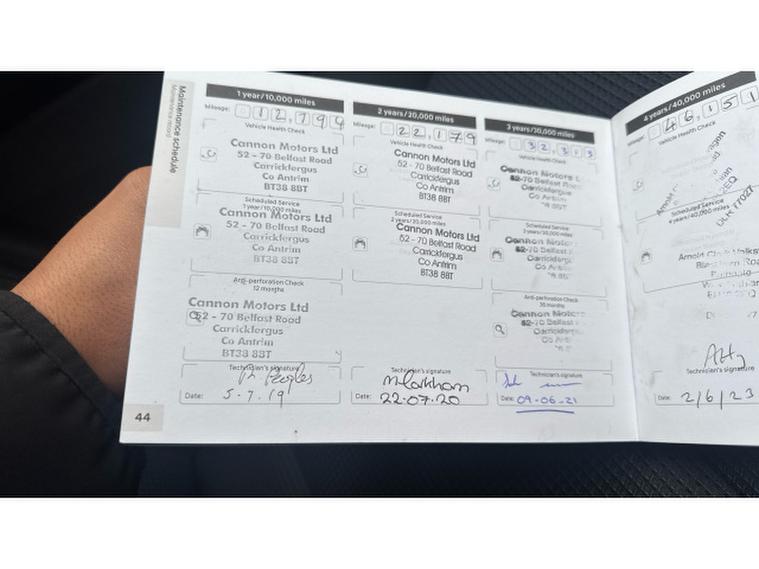 Maintenance schedule
Maintenance record
1 year/10,000 miles
Mileage: 12,794
Vehicle Health Check
Cannon Motors Ltd
52 - 70 Belfast Road
Carrickfergus
Co Antrim
BT38 8BT
Scheduled Service
1 year/10,000 miles
Cannon Motors Ltd
52 - 70 Belfast Road
Carrickfergus
Co Antrim
BT38 8BT
Anti-perforation Check
12 months
Cannon Motors Ltd
52 - 70 Belfast Road
Carrickfergus
Co Antrim
BT38 8BT
Technician's signature
Date: 5.7.19
44
2 years/20,000 miles
Mileage: 22,179
Vehicle Health Check
Cannon Motors Ltd
52 - 70 Belfast Road
Carrickfergus
Co Antrim
BT38 8BT
Scheduled Service
2 years/20,000 miles
Cannon Motors Ltd
52 - 70 Belfast Road
Carrickfergus
Co Antrim
BT38 8BT
Technician's signature
Date: 22.07.20
3 years/30,000 miles
Mileage: 32,313
Vehicle Health Check
Cannon Motors L
52-70 Belfast Ro
Carrickfergus
Co Antrim
Scheduled Service
3 years/30,000 miles
Cannon Motor
52-70 Belfast
Carrickfergu
Co An
Anti-perforation Check
36 months
Cannon Motors
52-70 Belfast
Carrickfergu
Co
Technician's signature
Date: 09-06-21
4 years/40,000 miles
Mileage: 46,151
Vehicle Health Check
Scheduled Service
4 years/40,000 miles
Arnold
Technician's signature
Date: 2/6/23